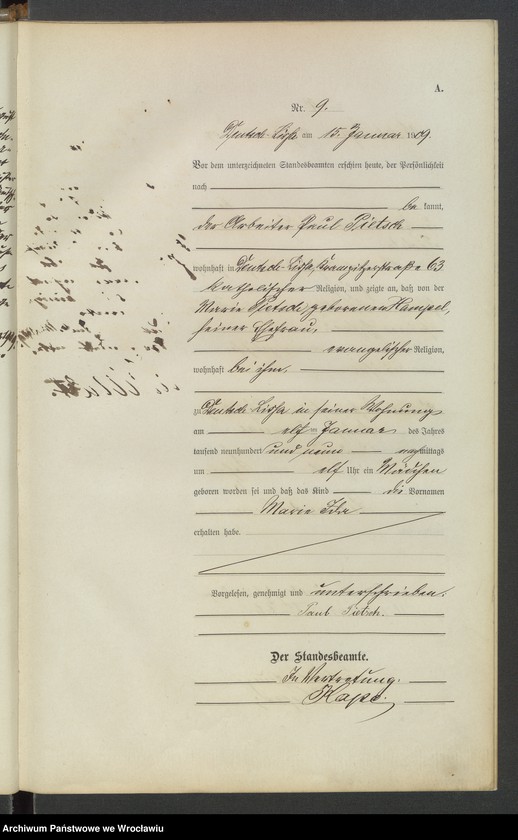 A.
Nr. 9.
Deutsch-Lissa am 15. Januar 1909.
Vor dem unterzeichneten Standesbeamten erschien heute, der Persönlichkeit
nach
be kannt,
der Arbeiter Paul Pietsch
wohnhaft in Deutsch-Lissa, 63
katholischer Religion, und zeigte an, daß von der
Marie Pietsch, geborenen Hampel,
seiner Ehefrau,
evangelischer Religion,
wohnhaft bei ihm,
zu Deutsch-Lissa in seiner Wohnung
am elf ten Januar des Jahres
tausend neunhundert und neun nachmittags
um elf Uhr ein Mädchen
geboren worden sei und daß das Kind die Vornamen
Marie Ida
erhalten habe.
Vorgelesen, genehmigt und unterschrieben.
Paul Pietsch.
Der Standesbeamte.
In Vertretung.
Archiwum Państwowe we Wrocławiu